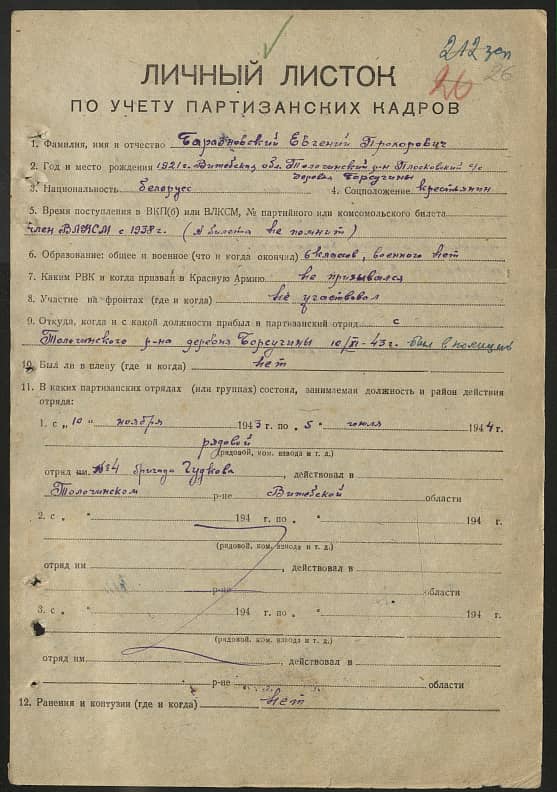 212 зсп
26
26
ЛИЧНЫЙ ЛИСТОК
ПО УЧЕТУ ПАРТИЗАНСКИХ КАДРОВ
1. Фамилия, имя и отчество Барановский Евгений Прохорович
2. Год и место рождения 1921 г. Витебская обл. Толочинский р-н Плосковский с/с
деревня Борсучины
3. Национальность белорусс 4. Соцположение крестьянин
5. Время поступления в ВКП(б) или ВЛКСМ, № партийного или комсомольского билета
член ВЛКСМ с 1938 г. (№ билета не помнит)
6. Образование: общее и военное (что и когда окончил) 6 классов, военного нет
7. Каким РВК и когда призван в Красную Армию не призывался
8. Участие на фронтах (где и когда) не участвовал
9. Откуда, когда и с какой должности прибыл в партизанский отряд с
Толочинского р-на деревня Борсучины 10/XI-43 г. был в полиции
10. Был ли в плену (где и когда) нет
11. В каких партизанских отрядах (или группах) состоял, занимаемая должность и район действия
отряда:
1. с „ 10 " ноября 1943 г. по „ 5 " июля 1944 г.
рядовой
(рядовой, ком. взвода и т. д.)
отряд им. №4 бригада Гудкова, действовал в
Толочинском р-не Витебской области
2. с „ " 194 г. по „ " 194 г.
(рядовой, ком. взвода и т. д.)
отряд им , действовал в
р-не области
3. с „ " 194 г. по „ " 194 г.
(рядовой, ком. взвода и т. д.)
отряд им. , действовал в
р-не области
12. Ранения и контузии (где и когда) нет